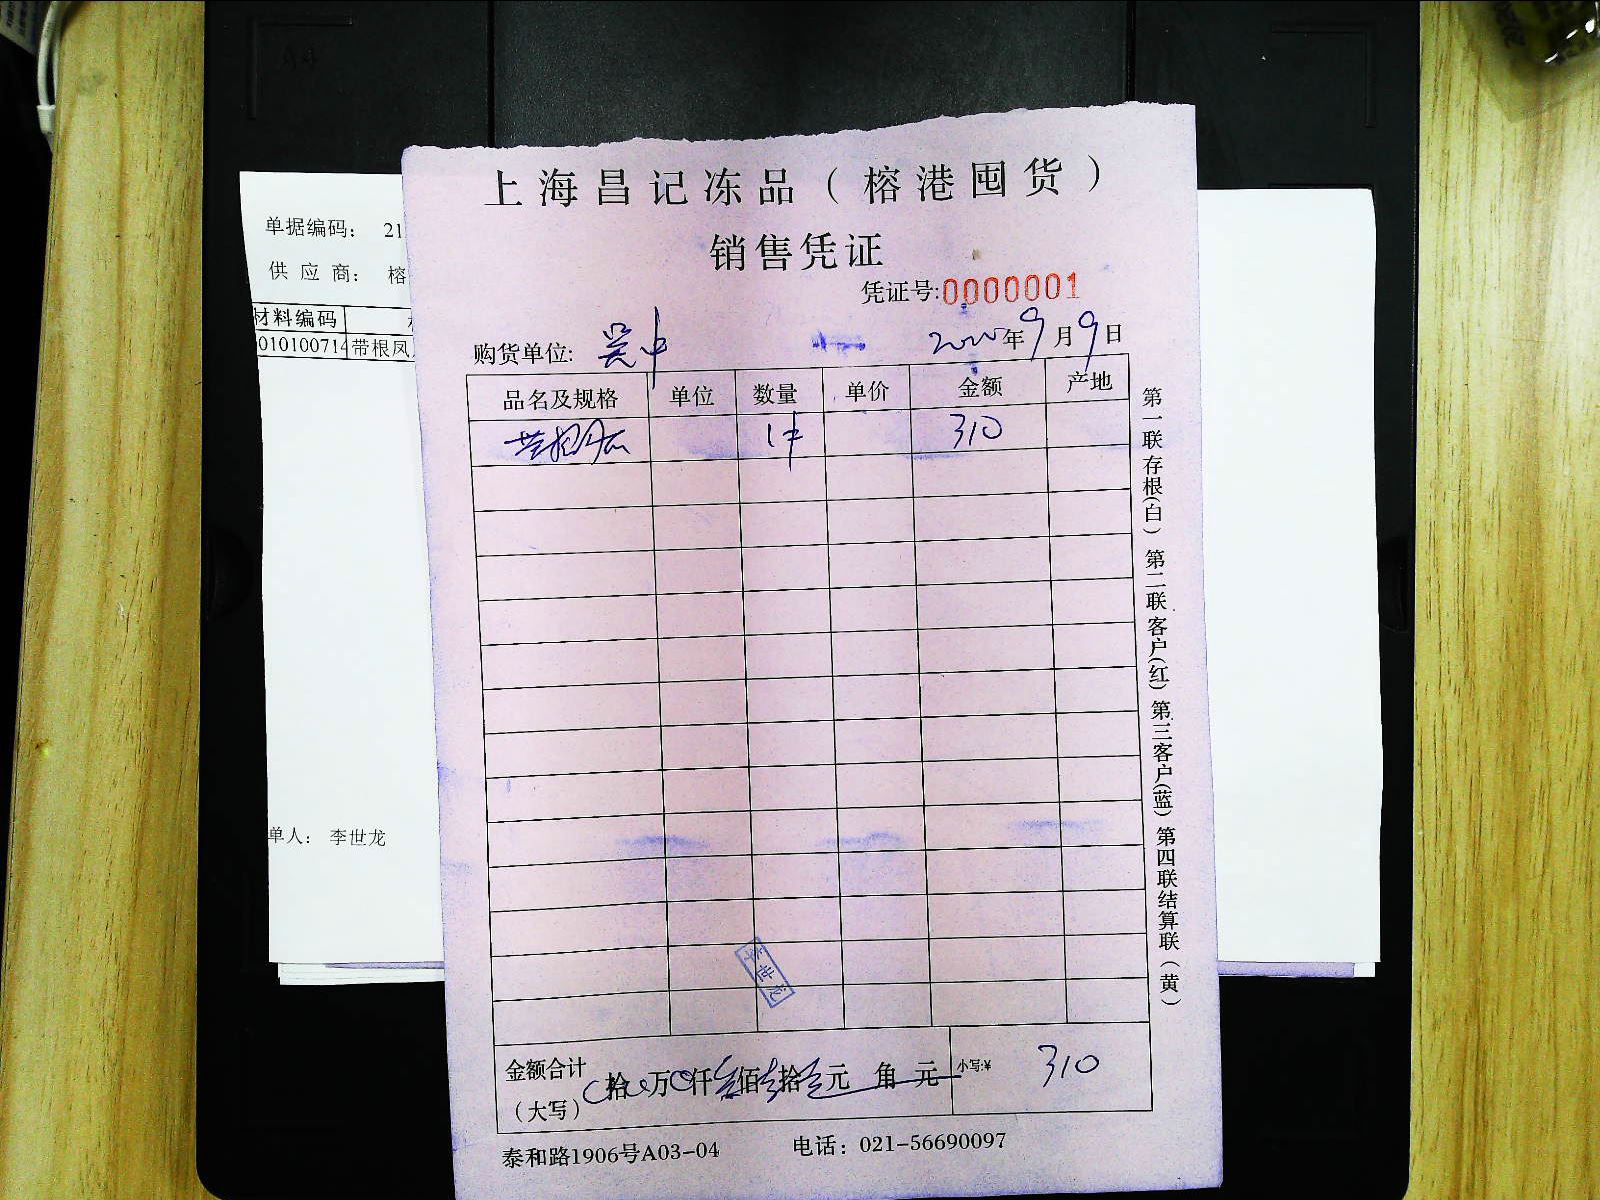 上海昌记冻品（榕港囤货）
销售凭证
凭证号:0000001
购货单位: 吴中
2020年9月9日
品名及规格 单位 数量 单价 金额 产地
带根凤爪 1件 310
金额合计（大写） 拾 万 仟 佰 拾 元 角 元 小写:¥ 310
泰和路1906号A03-04 电话：021-56690097
第一联存根(白) 第二联客户(红) 第三客户(蓝) 第四联结算联(黄)
李世龙
单据编码： 21
供 应 商： 榕
材料编码
010100714 带根凤
单人： 李世龙